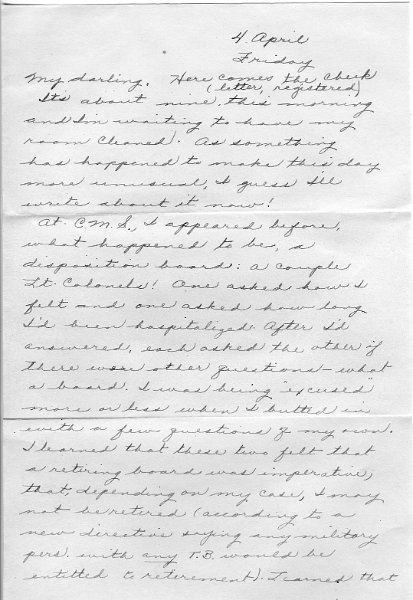 4 April
Friday
My darling. Here comes the check
(letter, registered)
Its about nine this morning
and I'm waiting to have my
room cleaned. As something
has happened to make this day
more unusual, I guess I'll
write about it now!
At C.M.S., I appeared before,
what happened to be, a
disposition board: a couple
Lt. Colonels! One asked how I
felt and one asked how long
I'd been hospitalized. After I'd
answered, each asked the other if
there were other questions - what
a board. I was being "excused"
more or less when I butted in
with a few questions of my own.
I learned that these two felt that
a retiring board was imperative,
that, depending on my case, I may
not be retired (according to a
new directive saying any military
pers. with any T.B. would be
entitled to retirement). I learned that